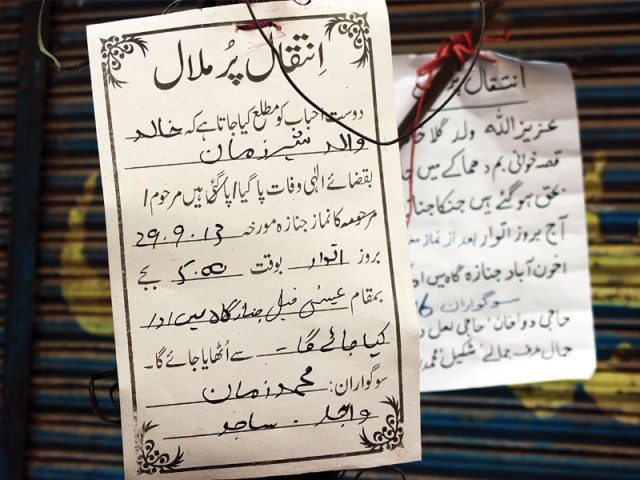 اِنتقال پُر ملال
دوست احباب کو مطلع کیا جاتا ہے کہ خالد
والد شیرزمان
بقضائے الٰہی وفات پا گیا/پا گئی ہیں مرحوم/
مرحومہ کا نماز جنازہ مورخہ 29.9.13
بروز اتوار بوقت 5:00 بجے
بمقام عیسیٰ خیل جناز گاہ میں ادا
کیا جائے گا - سے اُٹھایا جائے گا۔
سوگواران: محمد زمان
واجد . ساجد
انتقال پر
عزیز اللہ ولد گلا
قصہ خوانی بم دھماکے میں
بحق ہو گئے ہیں جنکا جناز
آج بروز اتوار بعد از نماز
اخون آباد جنازہ گاہ میں اد
سوگواران
حاجی دواخان' حاجی لعل
جمال عرف جمالے' شکیل' محمد